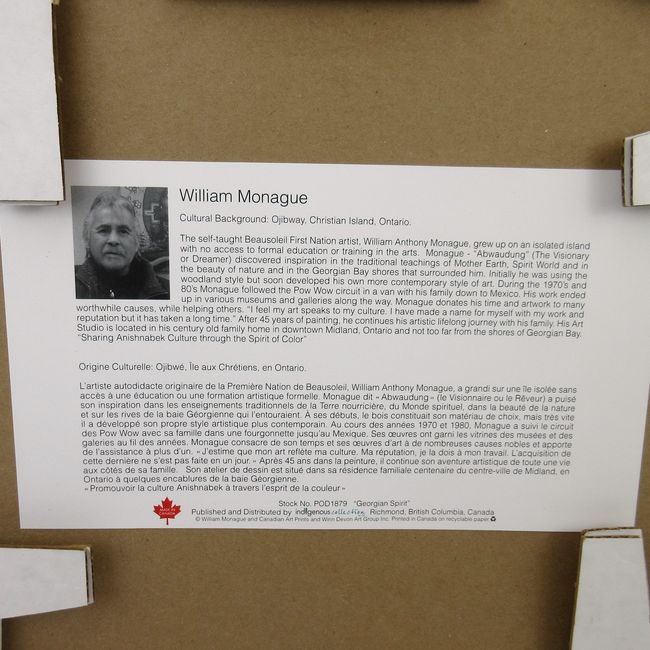 William Monague
Cultural Background: Ojibway, Christian Island, Ontario.
The self-taught Beausoleil First Nation artist, William Anthony Monague, grew up on an isolated island
with no access to formal education or training in the arts. Monague - "Abwaudung" (The Visionary
or Dreamer) discovered inspiration in the traditional teachings of Mother Earth, Spirit World and in
the beauty of nature and in the Georgian Bay shores that surrounded him. Initially he was using the
woodland style but soon developed his own more contemporary style of art. During the 1970's and
80's Monague followed the Pow Wow circuit in a van with his family down to Mexico. His work ended
up in various museums and galleries along the way. Monague donates his time and artwork to many
worthwhile causes, while helping others. "I feel my art speaks to my culture. I have made a name for myself with my work and
reputation but it has taken a long time." After 45 years of painting, he continues his artistic lifelong journey with his family. His Art
Studio is located in his century old family home in downtown Midland, Ontario and not too far from the shores of Georgian Bay.
"Sharing Anishnabek Culture through the Spirit of Color"
Origine Culturelle: Ojibwé, Île aux Chrétiens, en Ontario.
L'artiste autodidacte originaire de la Première Nation de Beausoleil, William Anthony Monague, a grandi sur une île isolée sans
accès à une éducation ou une formation artistique formelle. Monague dit « Abwaudung » (le Visionnaire ou le Rêveur) a puisé
son inspiration dans les enseignements traditionnels de la Terre nourricière, du Monde spirituel, dans la beauté de la nature
et sur les rives de la baie Géorgienne qui l'entouraient. À ses débuts, le bois constituait son matériau de choix, mais très vite
il a développé son propre style artistique plus contemporain. Au cours des années 1970 et 1980, Monague a suivi le circuit
des Pow Wow avec sa famille dans une fourgonnette jusqu'au Mexique. Ses œuvres ont garni les vitrines des musées et des
galeries au fil des années. Monague consacre de son temps et ses œuvres d'art à de nombreuses causes nobles et apporte
de l'assistance à plus d'un. « J'estime que mon art reflète ma culture. Ma réputation, je la dois à mon travail. L'acquisition de
cette dernière ne s'est pas faite en un jour. » Après 45 ans dans la peinture, il continue son aventure artistique de toute une vie
aux côtés de sa famille. Son atelier de dessin est situé dans sa résidence familiale centenaire du centre-ville de Midland, en
Ontario à quelques encablures de la baie Géorgienne.
« Promouvoir la culture Anishnabek à travers l'esprit de la couleur »
Stock No. POD1879 "Georgian Spirit"
MADE IN CANADA
Published and Distributed by indigenous collection Richmond, British Columbia, Canada
© William Monague and Canadian Art Prints and Winn Devon Art Group Inc. Printed in Canada on recyclable paper